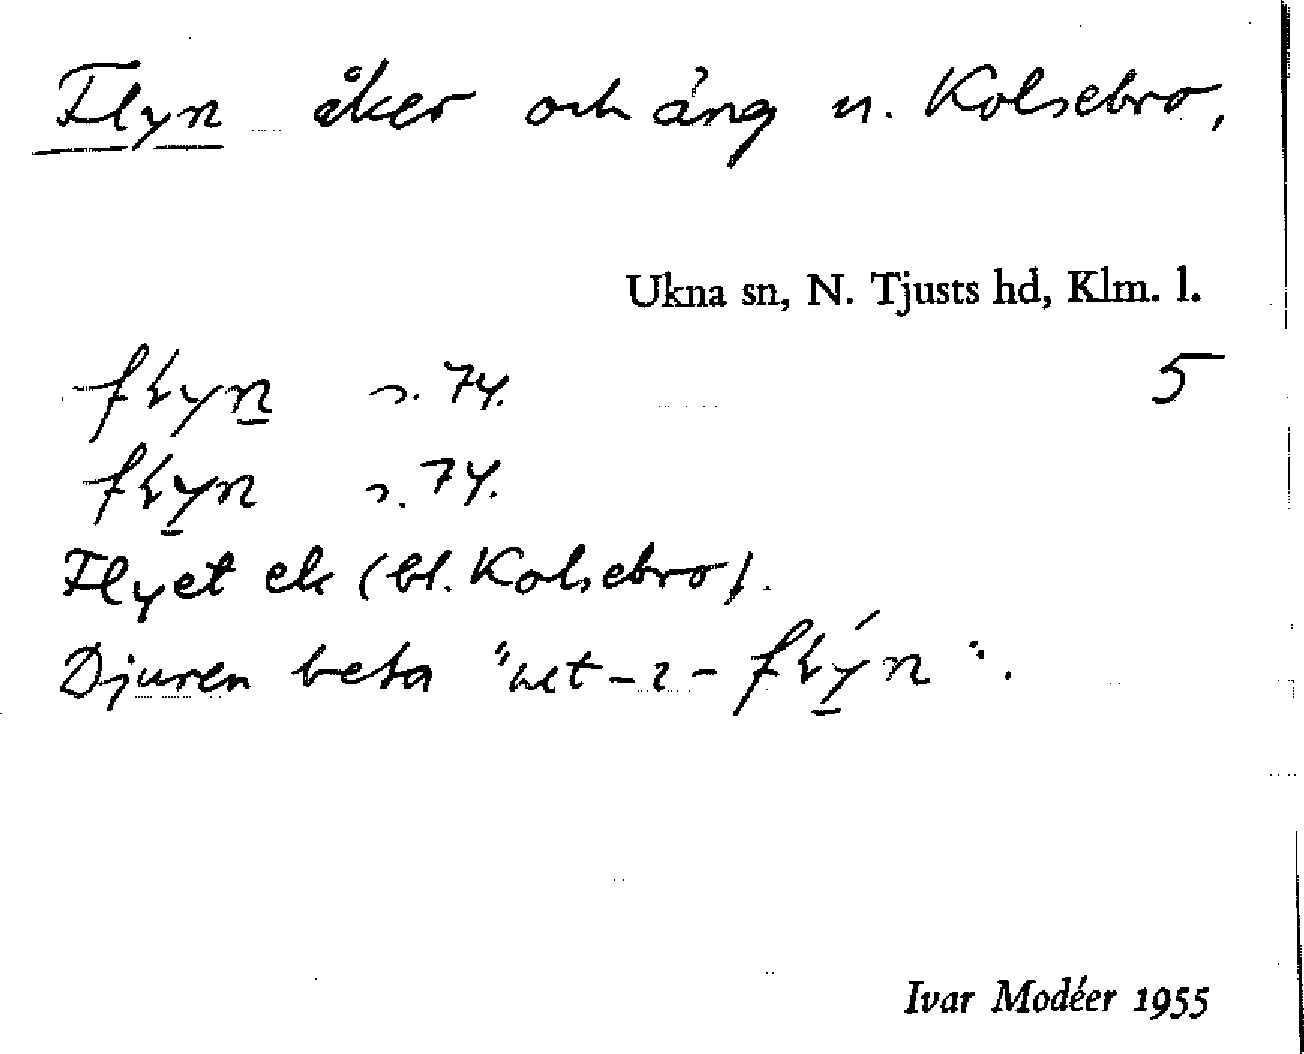 Flyn åker och äng n. Kolsebro,
Ukna sn, N. Tjusts hd, Klm. l.
flyn s. 74. 5
flyn s. 74.
Flyet ek (bl. Kolsebro).
Djuren beta "net-i-flýn".
Ivar Modéer 1955